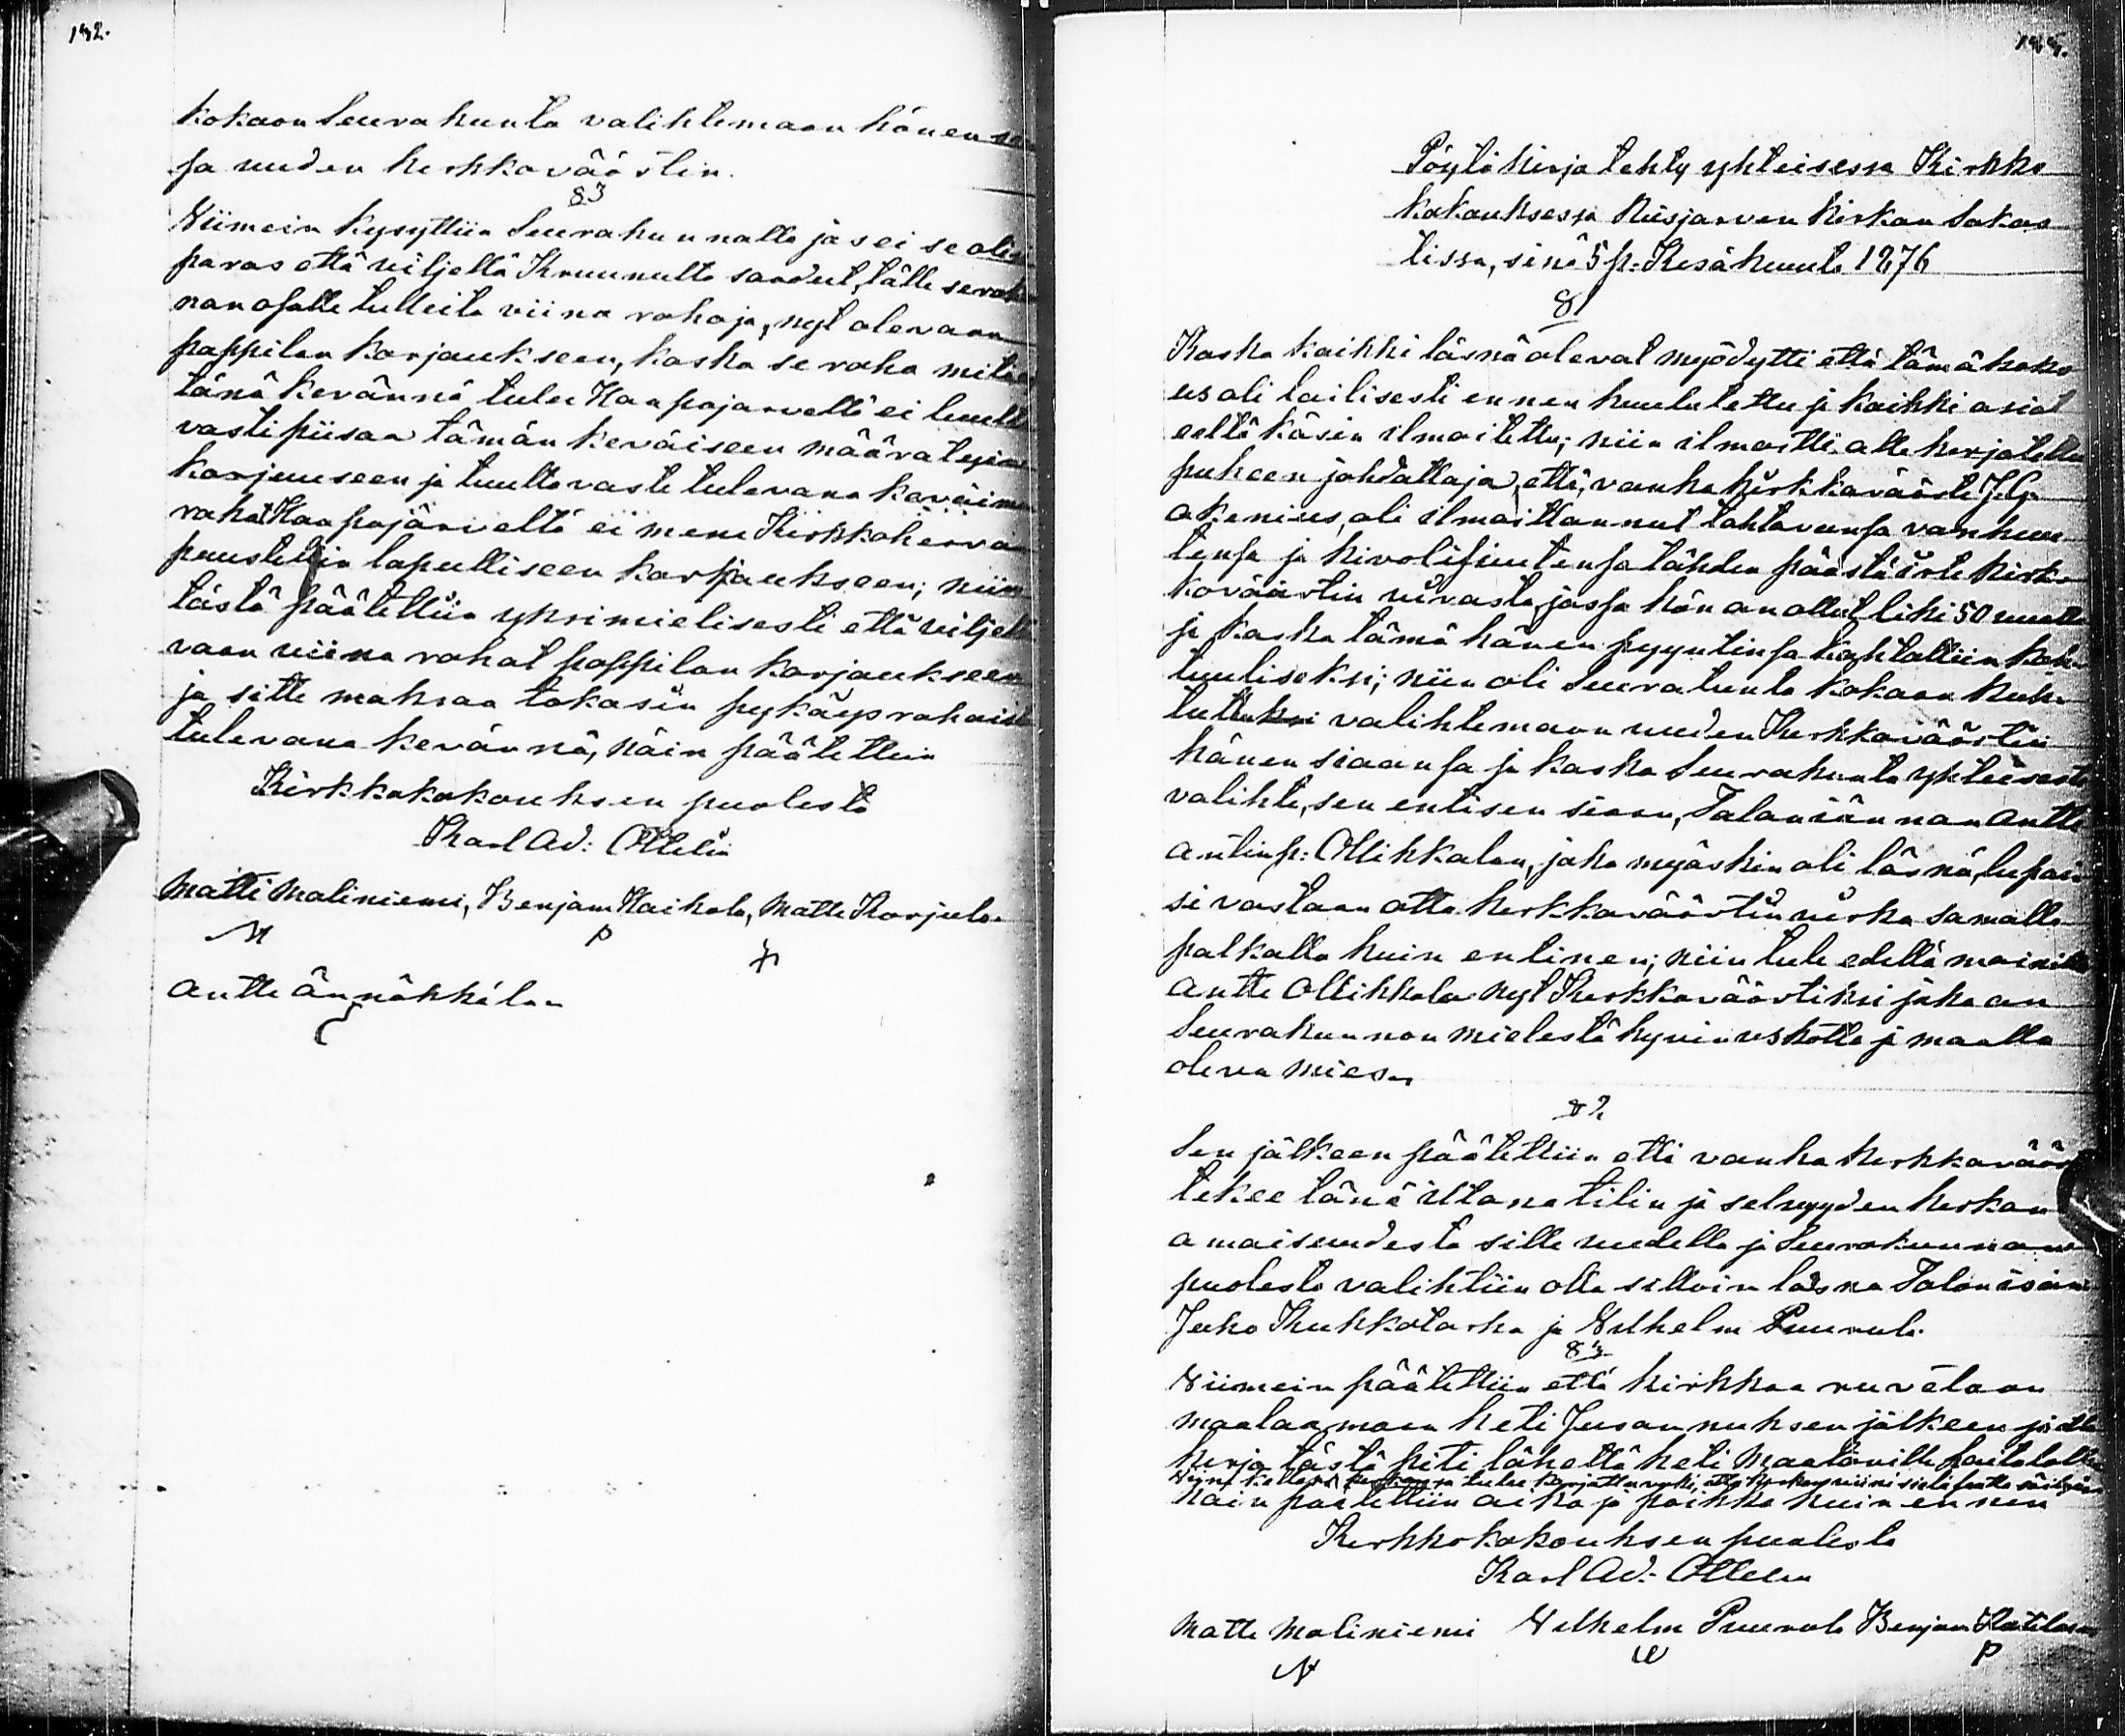 192.
kokoon Seurakunta valihtemaan hänen
sa uuden kirkkoväästin.
§3
Viimein kysyttiin Seurakunnalta jos ei se olisi
paras että viljeltä Kruunulta saadut, tälle seurakun
nan osalle tulleita viina rahoja, nyt olevaan
pappilan korjaukseen, koska se raha mitä
tänä kevännä tulee Haapajarvelta ei luulta
vasti piisaa tämän keväiseen määrätyyn
korjuuseen ja luultavaste tulevana keväimen
rahat Haapajärveltä ei mene Kirkkoherran
puustellin lopulliseen korjaukseen; niin
tästä päätettiin yksimielisesti että viljellä
vaan viina rahat pappilan korjaukseen
ja sitte maksaa takasin pykäys rahoista
tulevana kevännä, näin päätettiin
Kirkkokokouksen puolesta
Karl Ad: Ottelin
Matti Maliniemi, Benjam Kaihola, Matti Korjula
Antti Ännäkkälän
Pöytäkirja tehty yhteisessa Kirkko
kokouksessa Riisjarven Kirkon Sakas
tissa, sinä 5 p: Kesäkuuta 1876
§1
Koska kaikki läsnä olevat myödytti että tämä koko
us oli lailisesti ennen kuulutettu ja kaikki asiat
eeltä käsin ilmoitettu; niin ilmoitti alle kirjotettu
puheen johdattaja, että, vanha kirkkovääste J. G.
akenius, oli ilmoittannut tahtovansa vanhuu
tensa ja kivolisuutensa tähden päästä ärte kirk
koväärtin virasta, jossa hän on ollut liki 50 vuotta
ja koska tämä hänen pyyntinsa kohtattiin koh
tuuliseksi; niin oli Seurakunta kokoon kuk
tuttuksi valihtemaan uuden Kirkkoväärtin
hänen siaansa ja koska Seurakunta yhteisesti
valihti, sen entisen siaan, Talonisännän Antti
Antinp: Ollikkalan, joka myöskin oli läsnä, lupai
si vastaan otta kirkkoväärtin virka samalla
palkalla kuin entinen; niin tule edellä mainittu
Antti Ollikkala nyt Kirkkoväärtiksi joka on
Seurakunnan mielestä hyvin uskotta ja maalla
oleva mies.
§2
Sen jälkeen päätettiin että vanha kirkkoväär
tekee tänä iltana tilin ja selvyyden kirkon
omaisuudesta sille uudelle ja Seurakunnan
puolesta valihtiin olla silloin läsna Talonisän
Juho Kukkotarka ja Vilhelm Puurula.
§3
Viimein päätettiin että kirkkoa ruvetaan
maalaamaan heti Jusannuksen jälkeen ja että
kirja tästä piti lähettä heti Maalarille
Näin päätettiin aika ja paikka kuin ennen
Kirkkokokouksen puolesta
Karl Ad: Ottelin
Matti Maliniemi Vilhelm Puurula Benjam